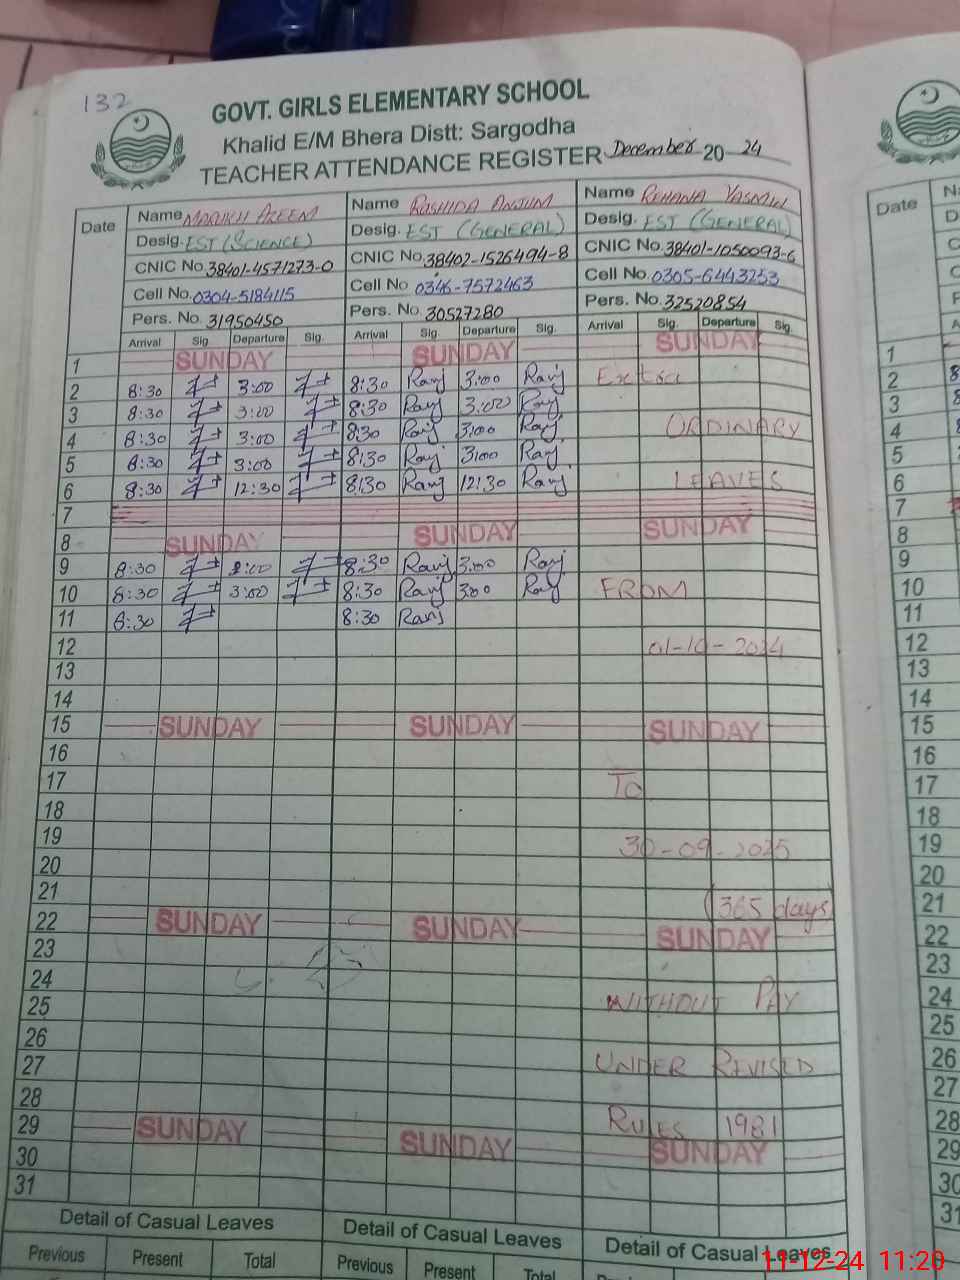 132
GOVT. GIRLS ELEMENTARY SCHOOL
Khalid E/M Bhera Distt: Sargodha
TEACHER ATTENDANCE REGISTER December 20 24
Date
Name MARUKH AZEEM Name RASHIDA ANJUM Name REHANA YASMIN
Desig. EST (SCIENCE) Desig. EST (GENERAL) Desig. EST (GENERAL)
CNIC No. 38401-4571273-0 CNIC No. 38402-1526494-8 CNIC No. 38401-1050093-6
Cell No. 0304-5184115 Cell No. 0346-7572463 Cell No. 0305-6443253
Pers. No. 31950450 Pers. No. 30527280 Pers. No. 32520854
Arrival Sig. Departure Sig. Arrival Sig. Departure Sig. Arrival Sig. Departure Sig.
1 SUNDAY SUNDAY SUNDAY
2 8:30 3:00 8:30 3:00 Extra
3 8:30 3:00 8:30 3:00
4 8:30 3:00 830 3:00 ORDINARY
5 8:30 3:00 8:30 3:00
6 8:30 12:30 8:30 12:30 LEAVES
7
8 SUNDAY SUNDAY SUNDAY
9 8:30 8:30 3:00
10 8:30 3:00 8:30 300 FROM
11 8:30 8:30
12 01-10-2024
13
14
15 SUNDAY SUNDAY SUNDAY
16
17 To
18
19 30-09-2025
20
21 (365 days)
22 SUNDAY SUNDAY SUNDAY
23
24 WITHOUT PAY
25
26
27 UNDER REVISED
28
29 SUNDAY SUNDAY SUNDAY RULES 1981
30
31
Detail of Casual Leaves Detail of Casual Leaves Detail of Casual Leaves
Previous Present Total Previous Present Total Previous Present
Date
1
2
3
4
5
6
7
8
9
10
11
12
13
14
15
16
17
18
19
20
21
22
23
24
25
26
27
28
29
30
31
11-12-24 11:20